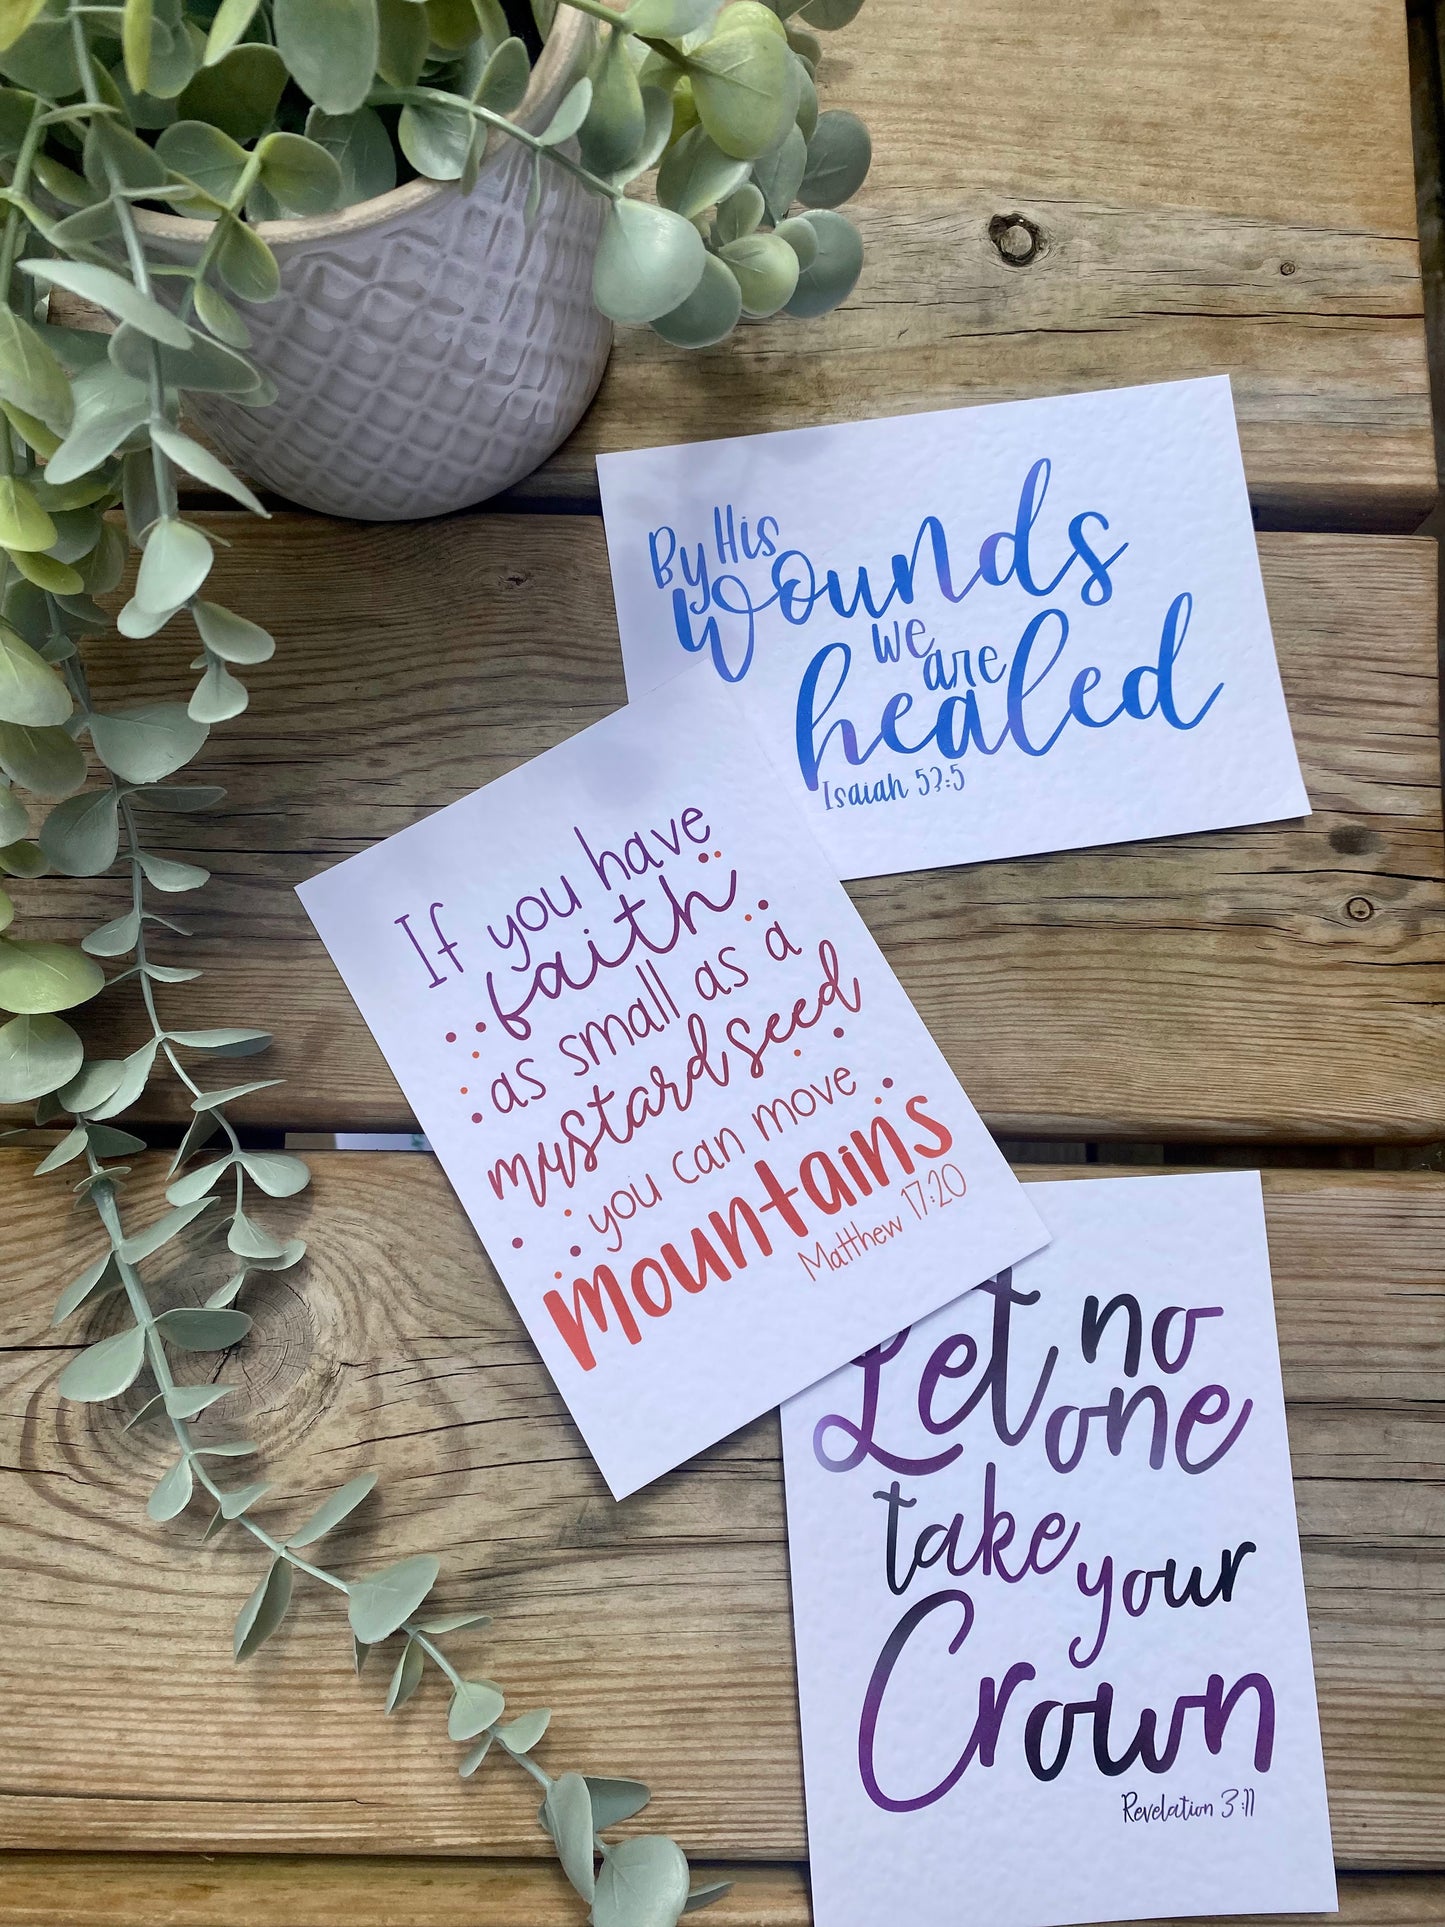 By His
wounds
we
are
healed
Isaiah 53:5
If you have
faith
as small as a
mustard seed
you can move
mountains
Matthew 17:20
Let no
one
take your
Crown
Revelation 3:11